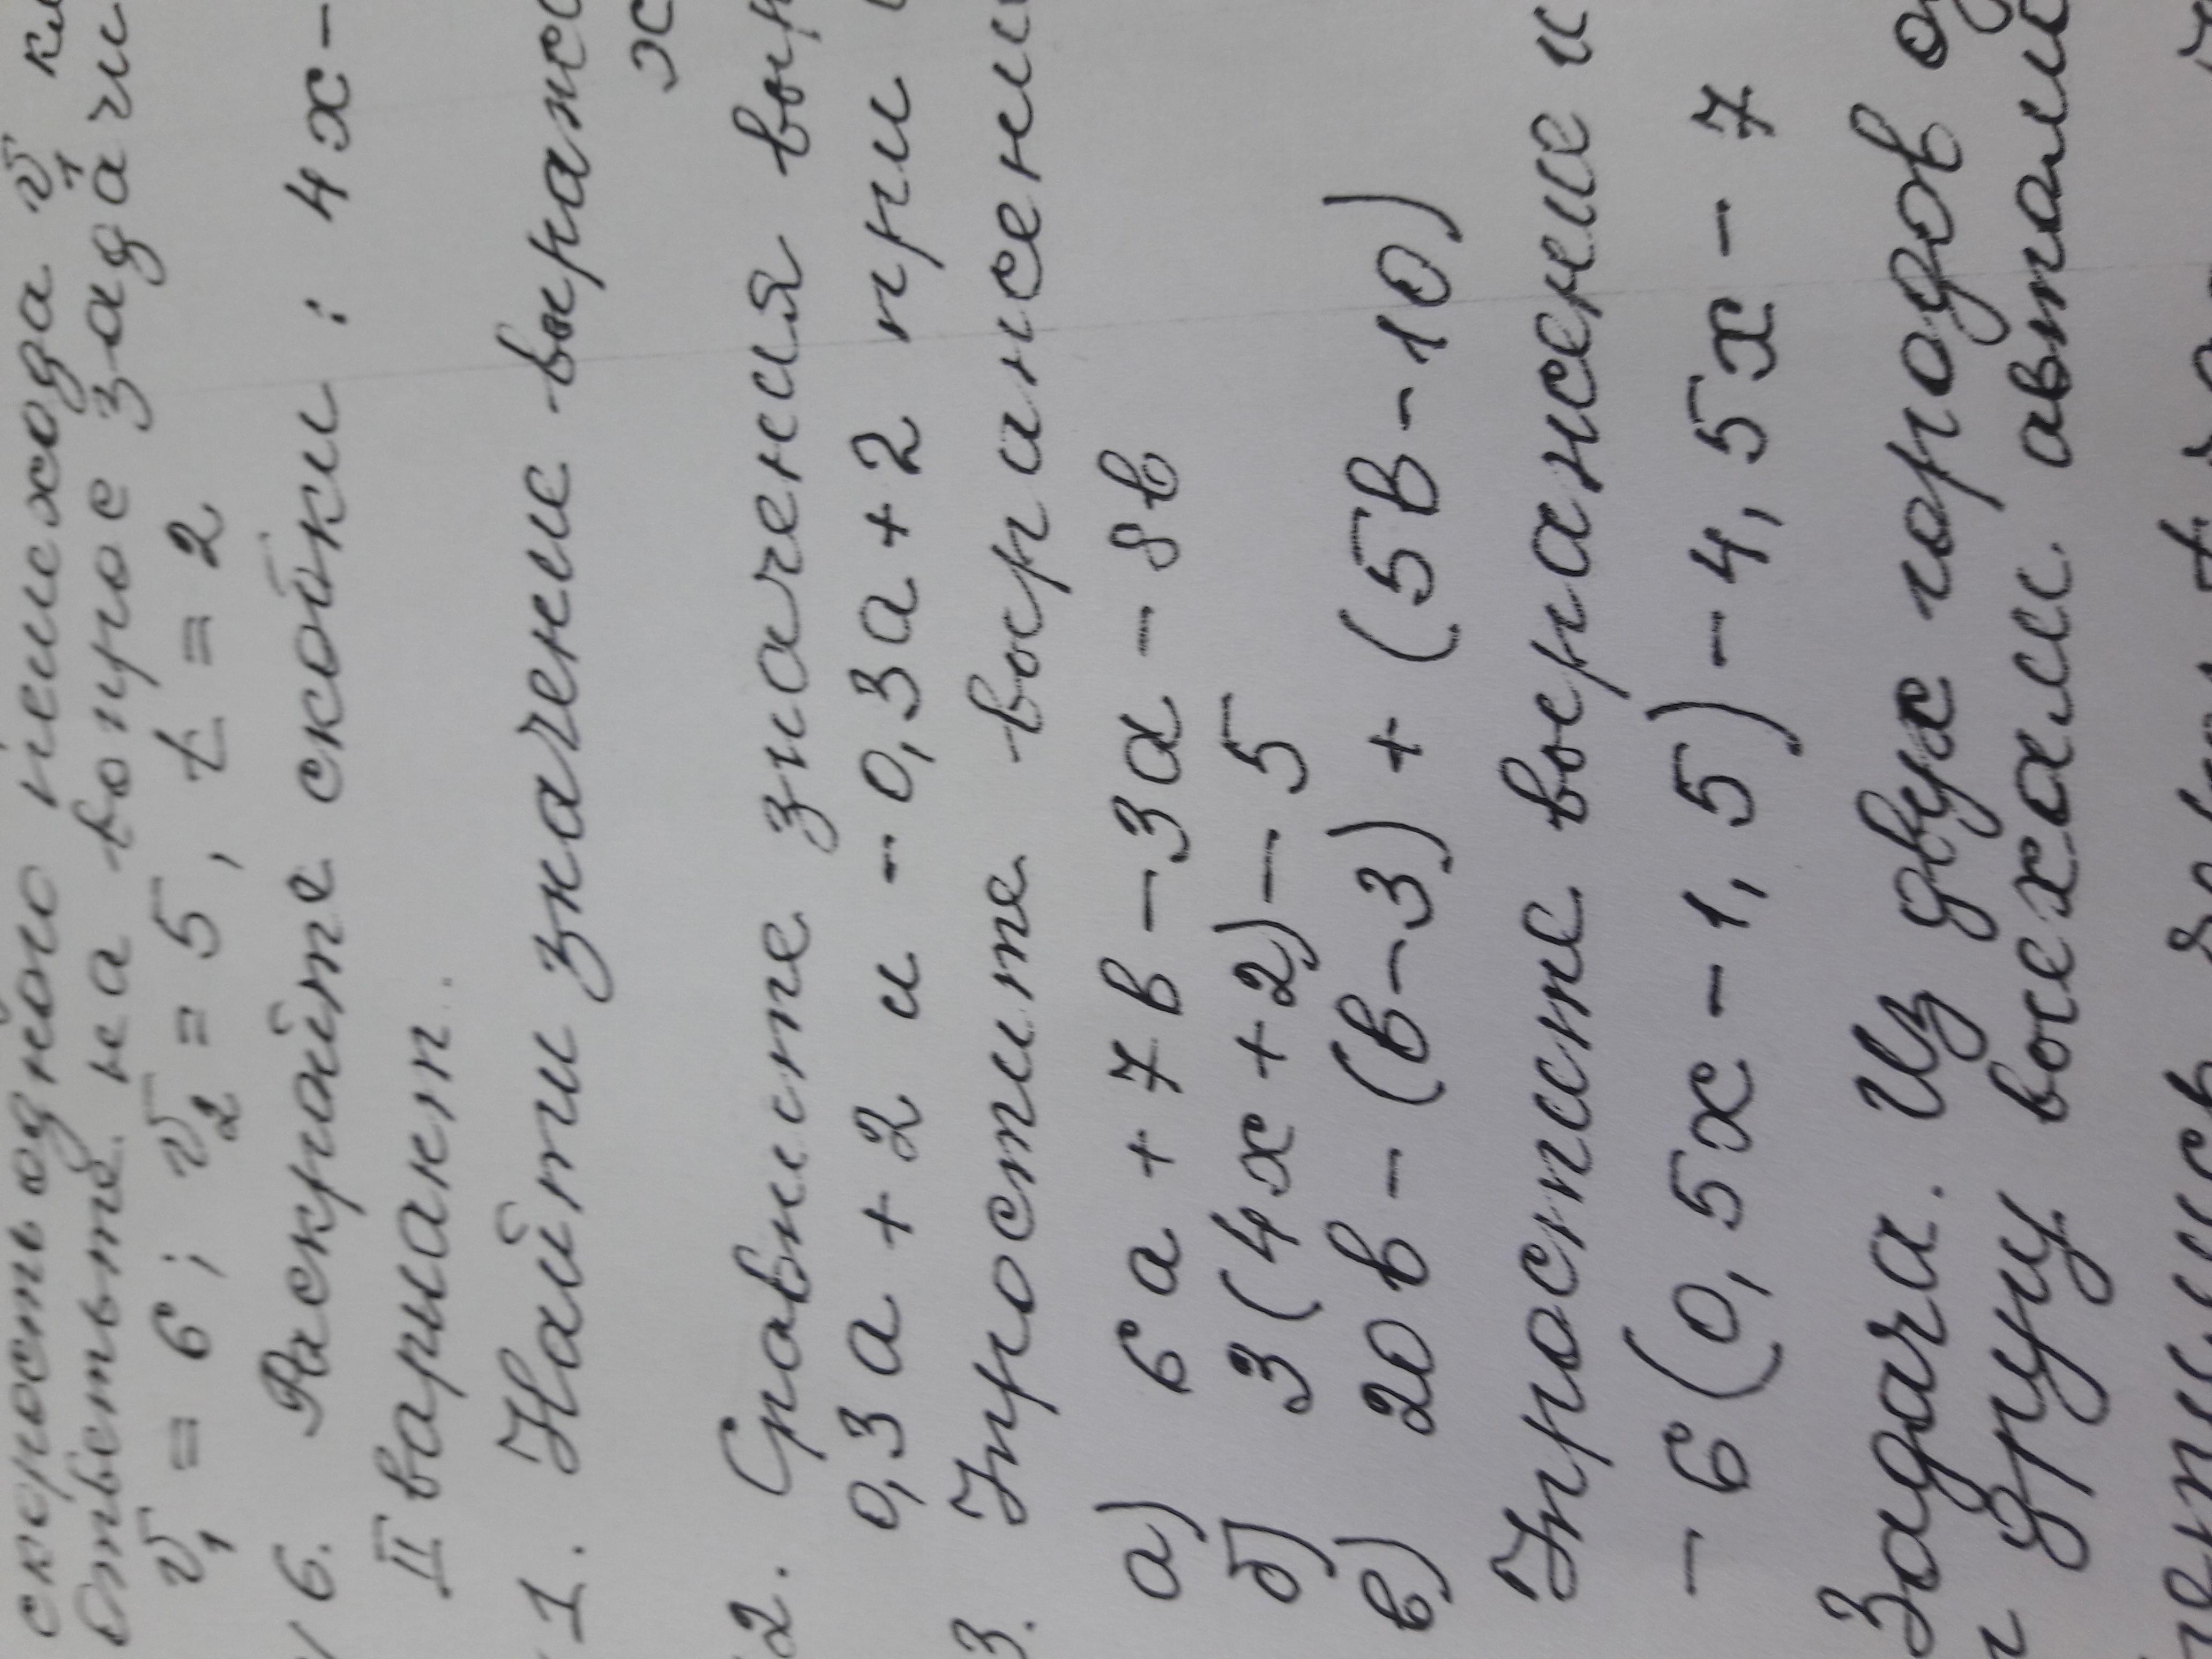 скорость одного пешехода v₁ км
Ответьте на вопрос задачи
v₁ = 6; v₂ = 5, t = 2
6. Раскройте скобки: 4x-
II вариант.
1. Найти значение выраже
x
2. Сравните значения выр
0,3a + 2 и - 0,3a + 2 при
3. Упростите выражени
а) 6a + 7в - 3a - 8в
б) 3(4x + 2) - 5
в) 20в - (в - 3) + (5в - 10)
Упростите выражение и
- 6(0,5x - 1,5) - 4,5x - 7
Задача. Из двух городов
другу выехали автом